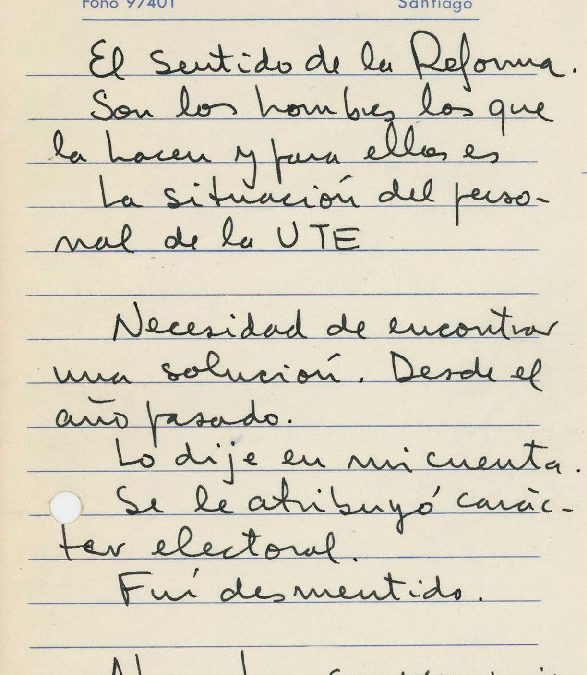 Fono 97401 Santiago
El sentido de la Reforma.
Son los hombres los que
la hacen y para ellos es
La situación del perso-
nal de la UTE
Necesidad de encontrar
una solución. Desde el
año pasado.
Lo dije en mi cuenta.
Se le atribuyó carác-
ter electoral.
Fuí desmentido.